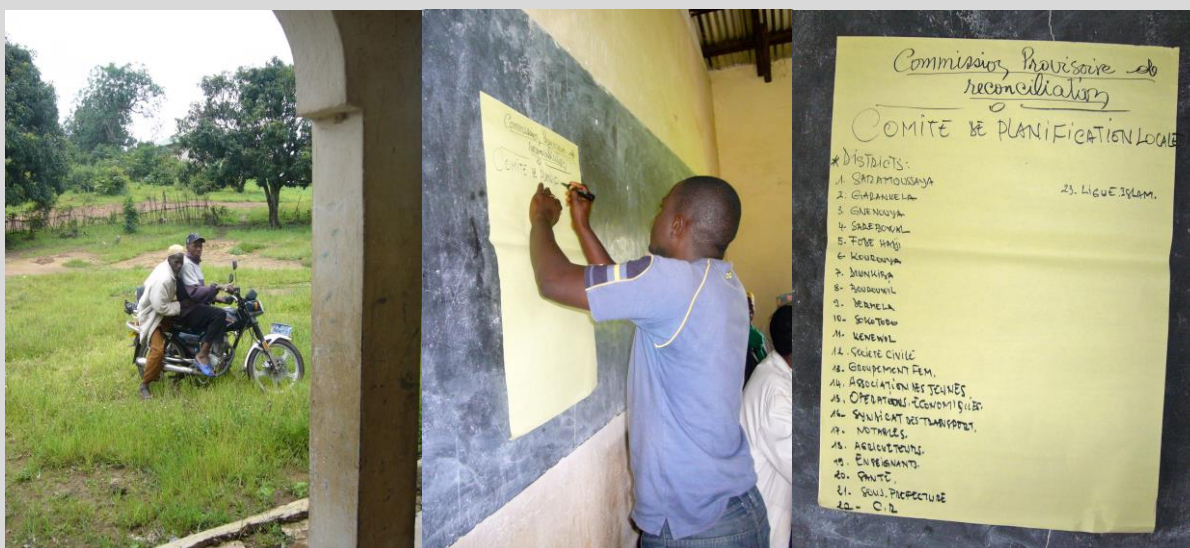 Commission Provisoire de
reconciliation
COMITE DE PLANIF
Commission Provisoire de
reconciliation
COMITE DE PLANIFICATION LOCALE
* DISTRICTS:
1. SARAMOUSSAYA
2. GARANKELA
3. GNENOUYA
4. SAREBOWAL
5. FOBE HADJI
6- KOUROUYA
7. DOUNKIBA
8- BOUROUWIL
9. DERMELA
10- SOKOTORO
11. KENEWEL
12. SOCIETE CIVILE
13. GROUPEMENT FEM.
14. ASSOCIATION DES JEUNES
15. OPERATIONS. ECONOMIQUES.
16- SYNDICAT DES TRANSPORT.
17. NOTABLES.
18. AGRICULTEURS.
19. ENSEIGNANTS.
20. SANTE.
21. SOUS. PREFECTURE
22- C.R
23. LIGUE. ISLAM.